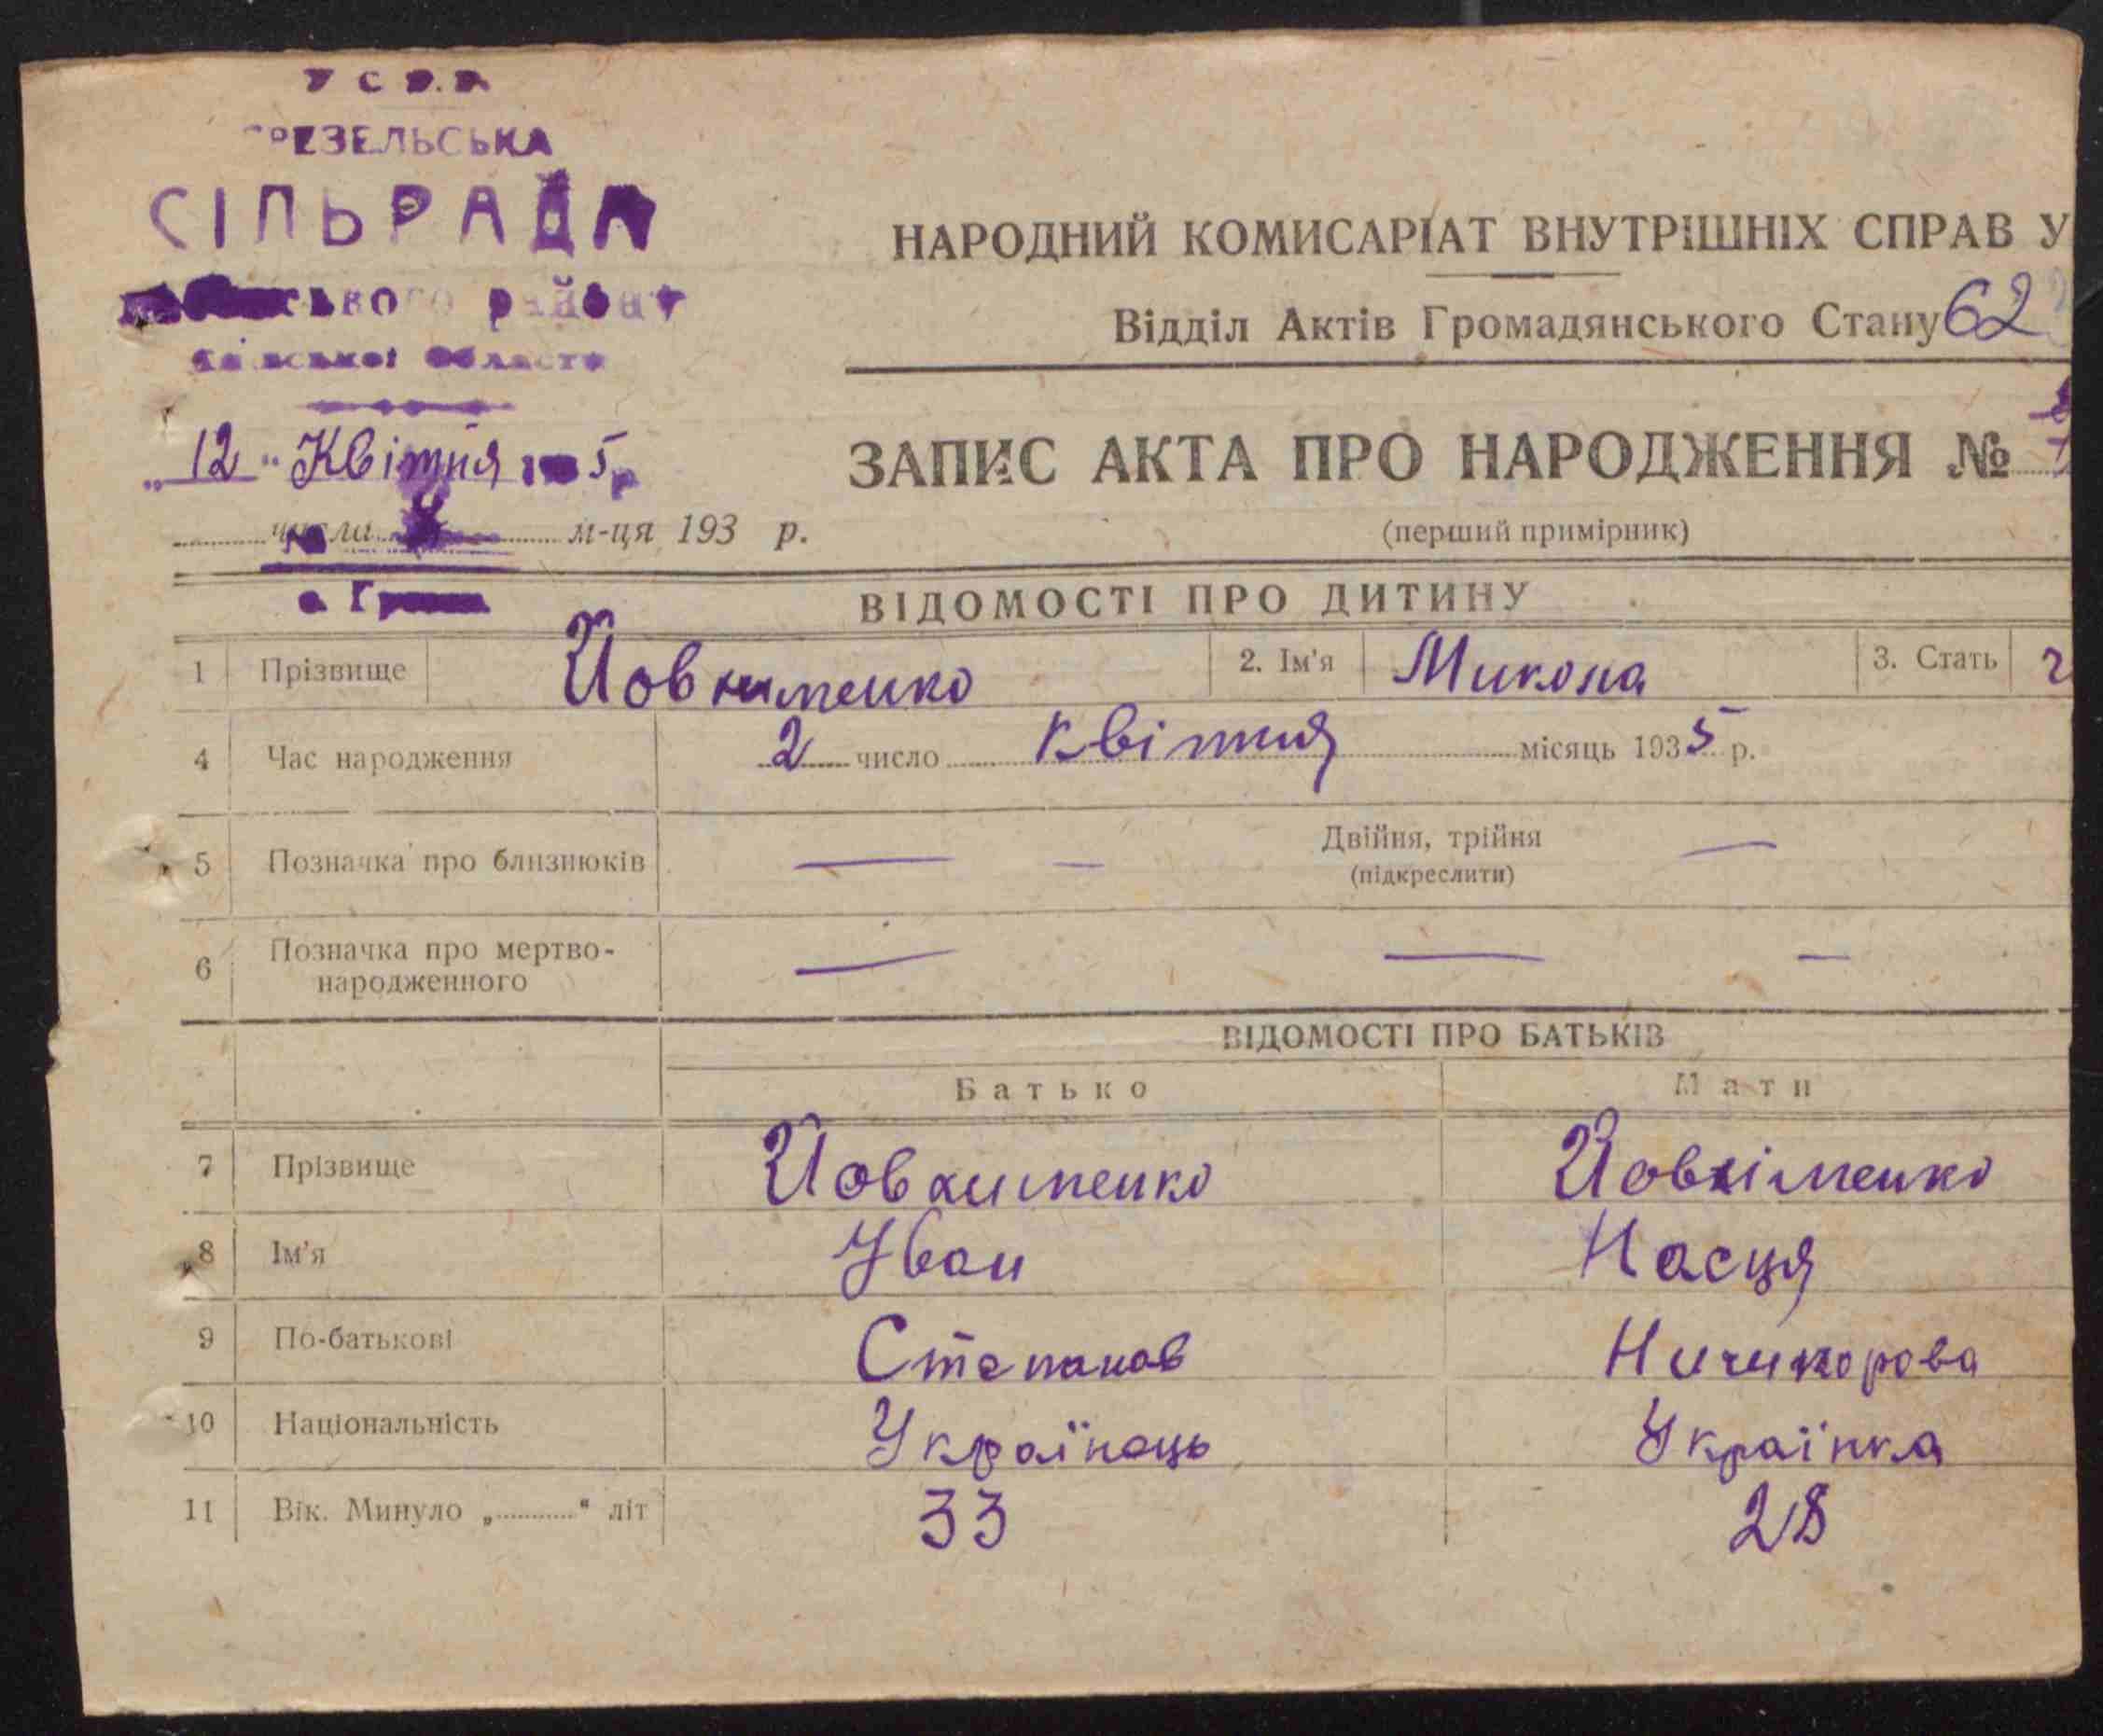 У С Р.Р.
РЕЗЕЛЬСЬКА
СІЛЬРАДА
ського району
Київської Области
„12" Квітня 1935 р
числа м-ця 193 р.
НАРОДНИЙ КОМИСАРІАТ ВНУТРІШНІХ СПРАВ У
Відділ Актів Громадянського Стану 62
ЗАПИС АКТА ПРО НАРОДЖЕННЯ №
(перший примірник)
ВІДОМОСТІ ПРО ДИТИНУ
1 Прізвище Йовхименко 2. Ім'я Микола 3. Стать
4 Час народження 2 число Квітня місяць 1935 р.
5 Позначка про близнюків — — Двійня, трійня —
(підкреслити)
6 Позначка про мертво-
народженного — — —
ВІДОМОСТІ ПРО БАТЬКІВ
Батько Мати
7 Прізвище Йовхименко Йовхіменко
8 Ім'я Іван Насця
9 По-батькові Степанов Ничипорова
10 Національність Українець Українка
11 Вік. Минуло „............" літ 33 28